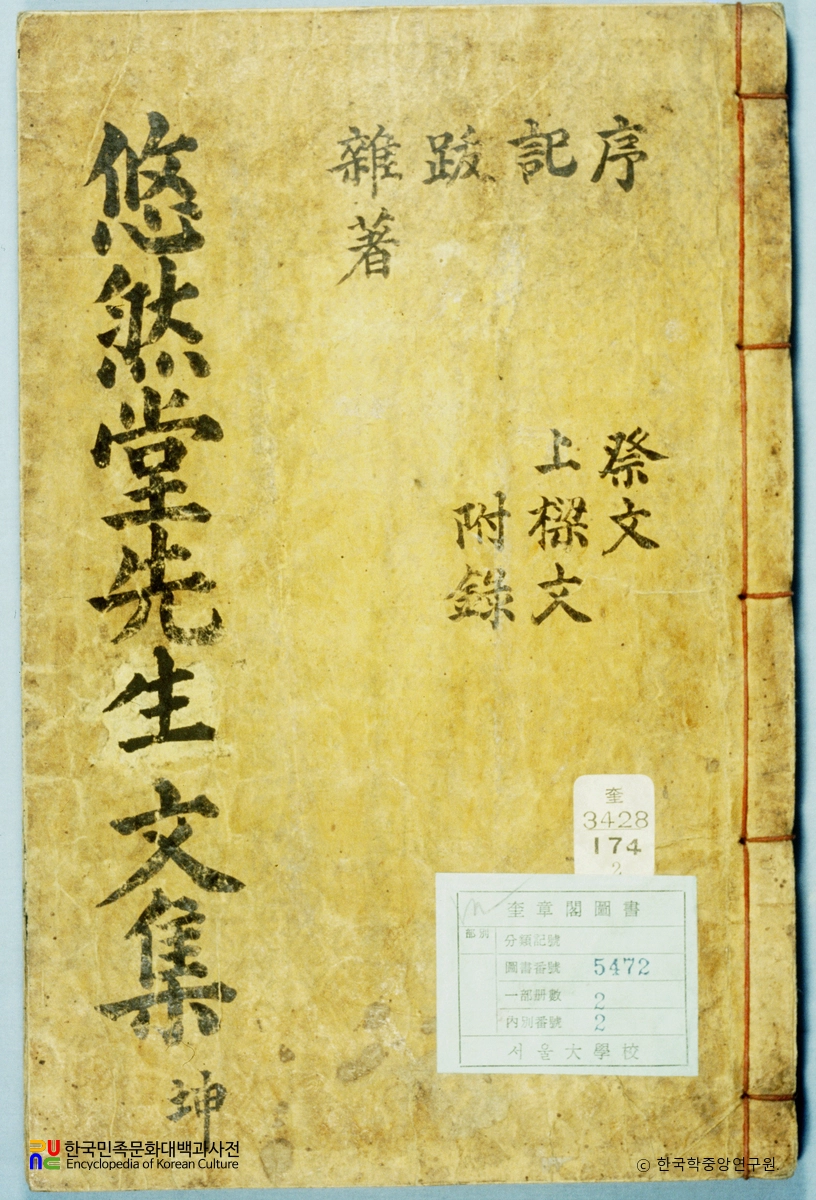 序
記
跋
雜著
祭文
上樑文
附錄
悠然堂先生文集 坤
奎
3428
174
2
奎章閣圖書
部別
分類記號
圖書番號 5472
一部册數 2
內別番號 2
서울大學校
한국민족문화대백과사전
Encyclopedia of Korean Culture
© 한국학중앙연구원